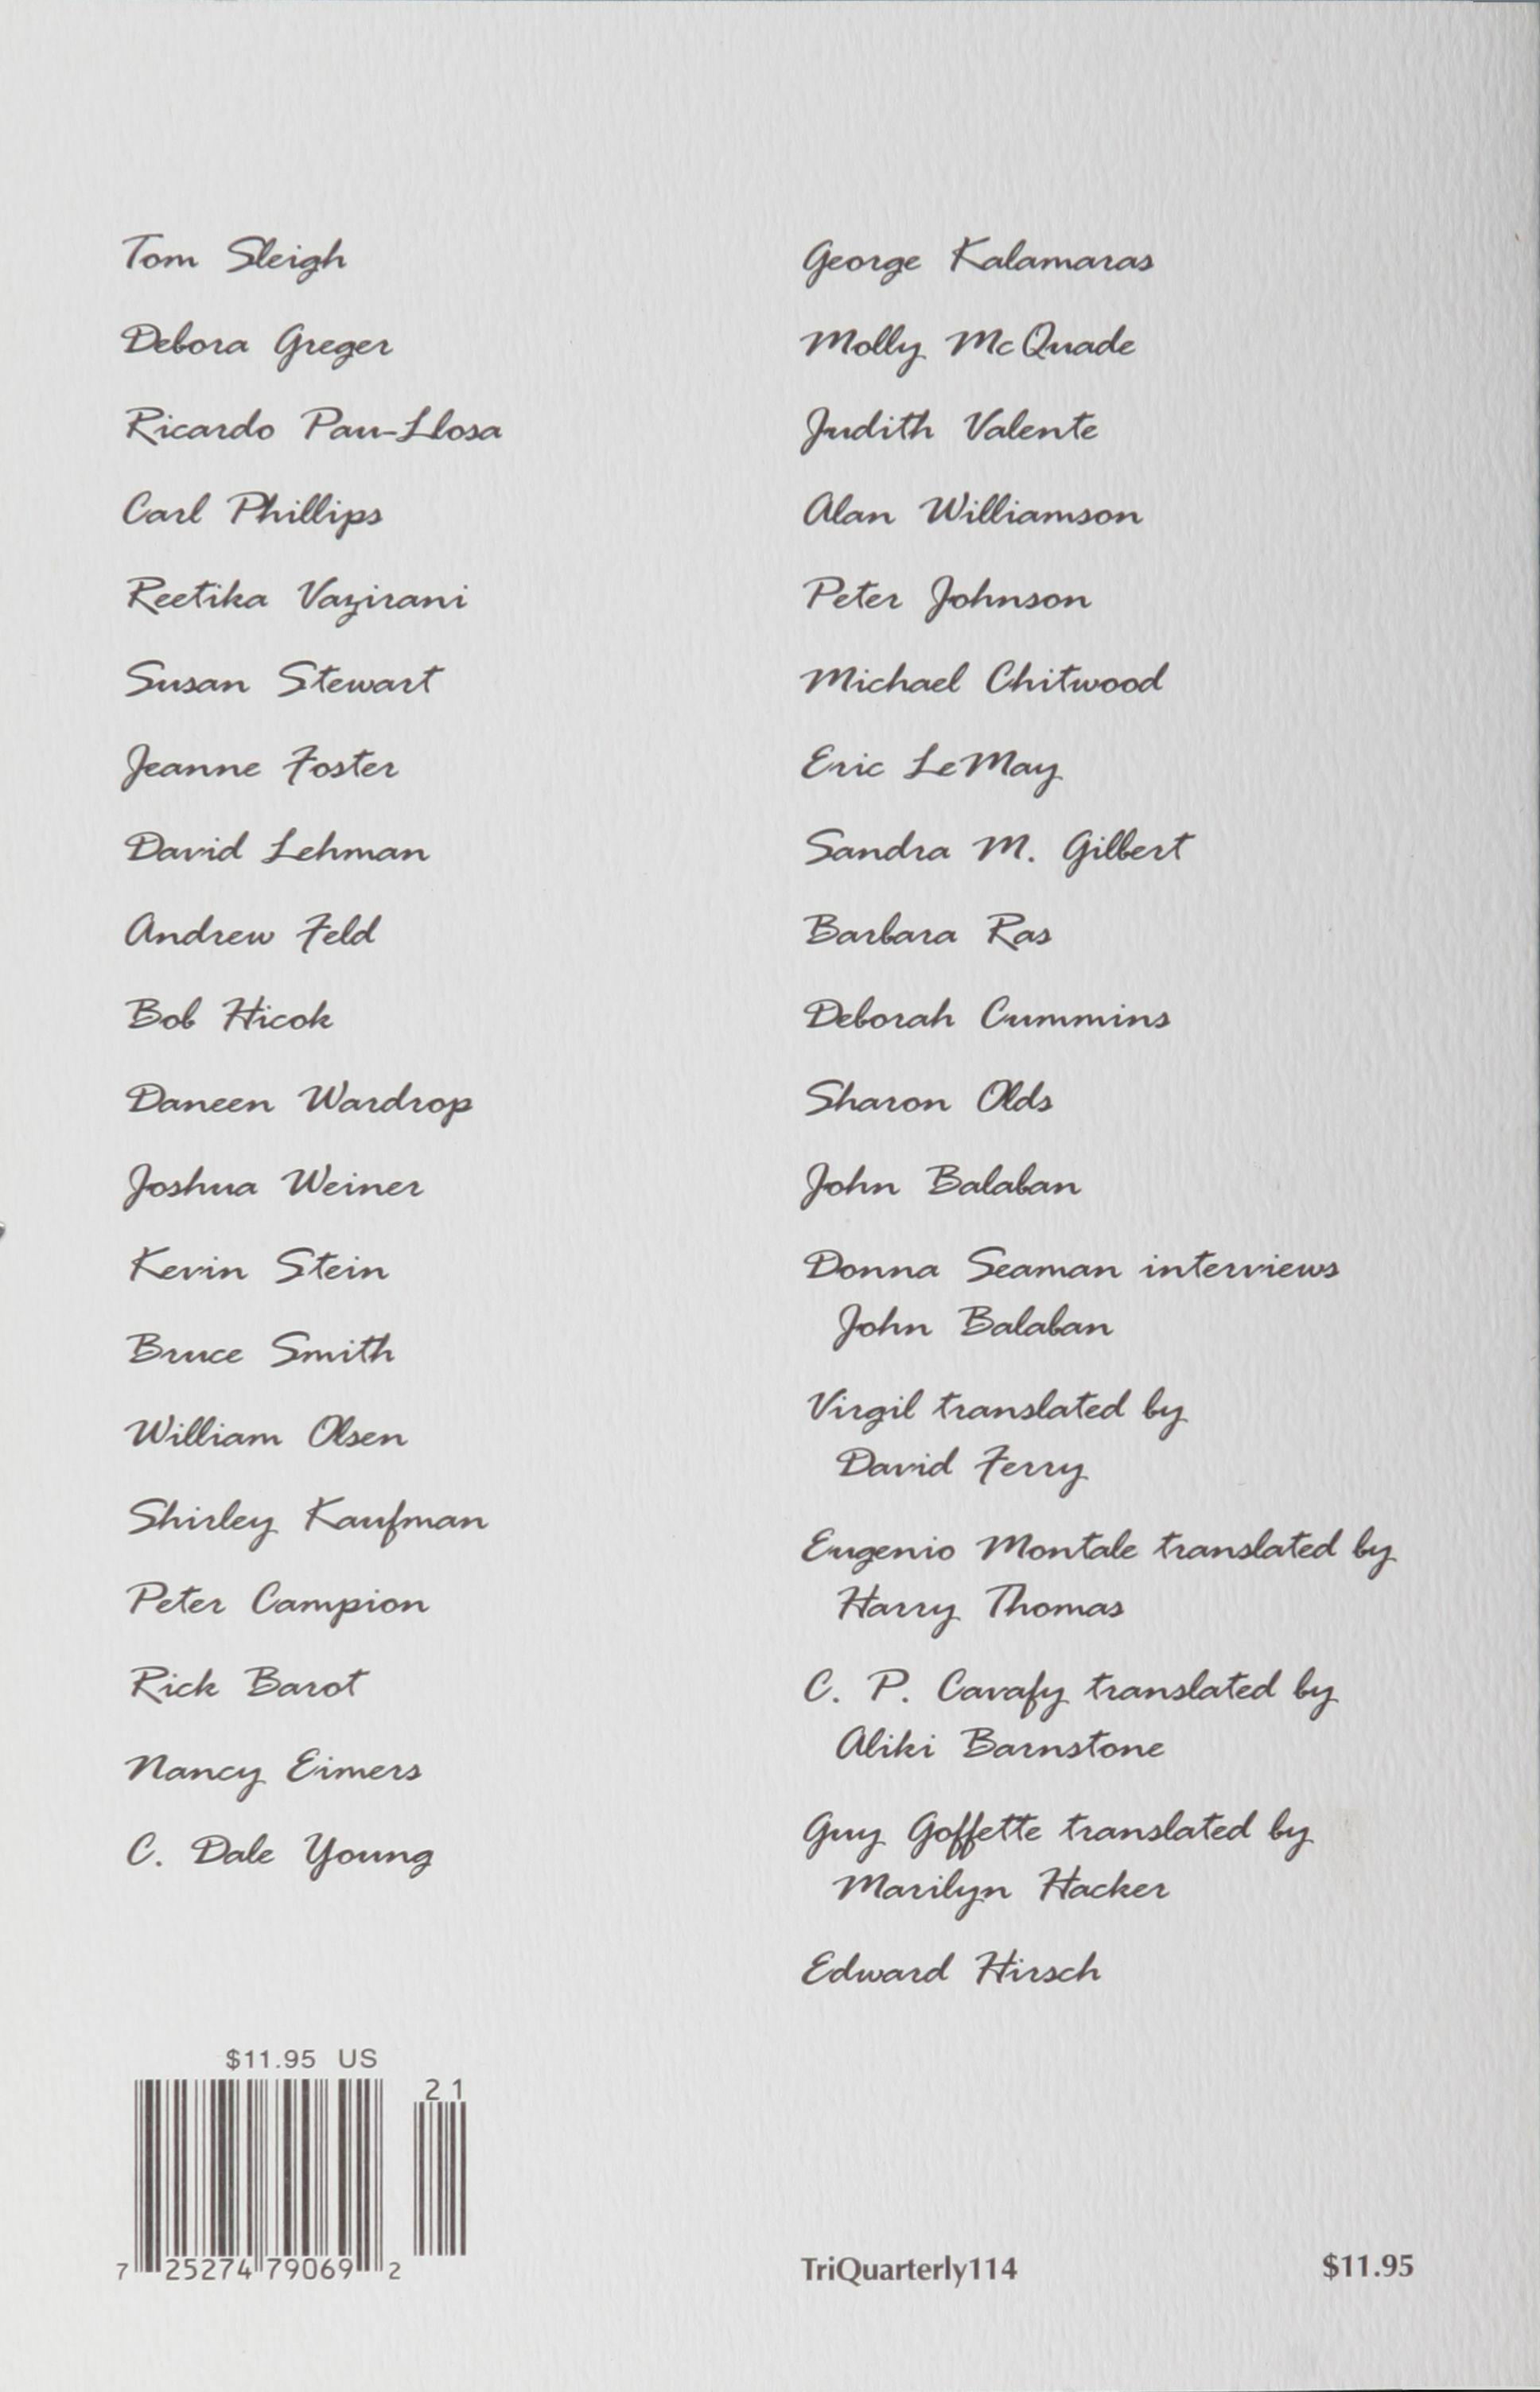 Tom Sleigh
Debora Greger
Ricardo Pau-Llosa
Carl Phillips
Reetika Vazirani
Susan Stewart
Jeanne Foster
David Lehman
Andrew Feld
Bob Hicok
Daneen Wardrop
Joshua Weiner
Kevin Stein
Bruce Smith
William Olsen
Shirley Kaufman
Peter Campion
Rick Barot
Nancy Eimers
C. Dale Young
George Kalamaras
Molly McQuade
Judith Valente
Alan Williamson
Peter Johnson
Michael Chitwood
Eric LeMay
Sandra M. Gilbert
Barbara Ras
Deborah Cummins
Sharon Olds
John Balaban
Donna Seaman interviews
John Balaban
Virgil translated by
David Ferry
Eugenio Montale translated by
Harry Thomas
C. P. Cavafy translated by
Aliki Barnstone
Guy Goffette translated by
Marilyn Hacker
Edward Hirsch
$11.95 US
21
7 25274 79069 2
TriQuarterly114
$11.95